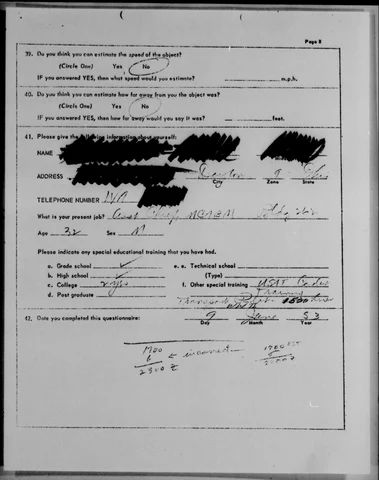 Page 8
39. Do you think you can estimate the speed of the object?
(Circle One) Yes No
IF you answered YES, then what speed would you estimate? m.p.h.
40. Do you think you can estimate how far away from you the object was?
(Circle One) Yes No
IF you answered YES, then how far away would you say it was? feet.
41. Please give the following information about yourself:
NAME
ADDRESS Dayton 9 Ohio
City Zone State
TELEPHONE NUMBER
What is your present job? Asst Chief Bldg 262
Age 32 Sex M
Please indicate any special educational training that you have had.
a. Grade school ✓ e. Technical school
b. High school ✓ (Type)
c. College f. Other special training USAF Cadet
d. Post graduate Training
Thousand 1500 hrs
42. Date you completed this questionnaire: 9 June 53
Day Month Year
1700
6 ← incorrect
2300 Z